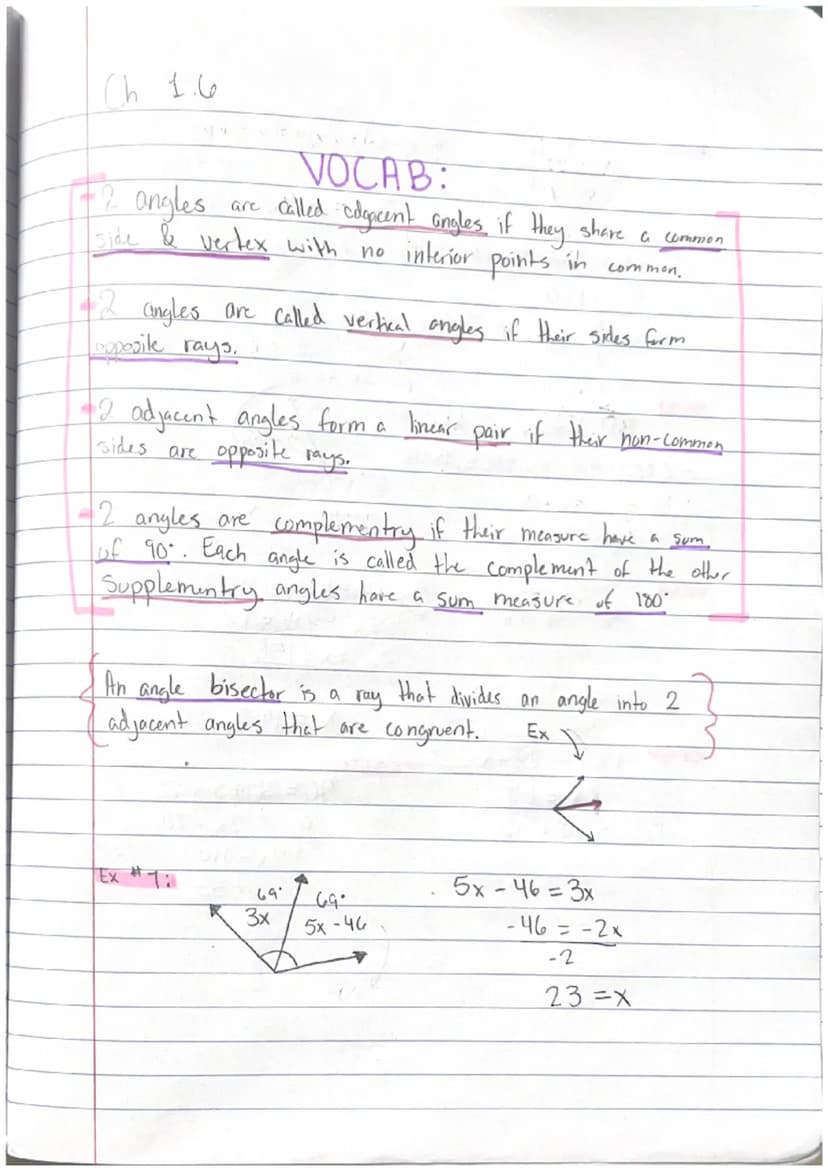 Ch 1.6
VOCAB:
- 2 angles are called adgacent angles if they share a common
side & vertex with no interior points in common.
- 2 angles are called vertical angles if their sides form
opposite rays.
- 2 adjacent angles form a linear pair if their non-common
sides are opposite rays.
- 2 angles are complementry if their measure have a sum
of 90°. Each angle is called the complement of the other
Supplementry angles have a sum measure of 180°
An angle bisector is a ray that divides an angle into 2
adjacent angles that are congruent. Ex
Ex #1:
69° 69°
3x 5x-46
5x - 46 = 3x
-46 = -2x
-2
23 = x